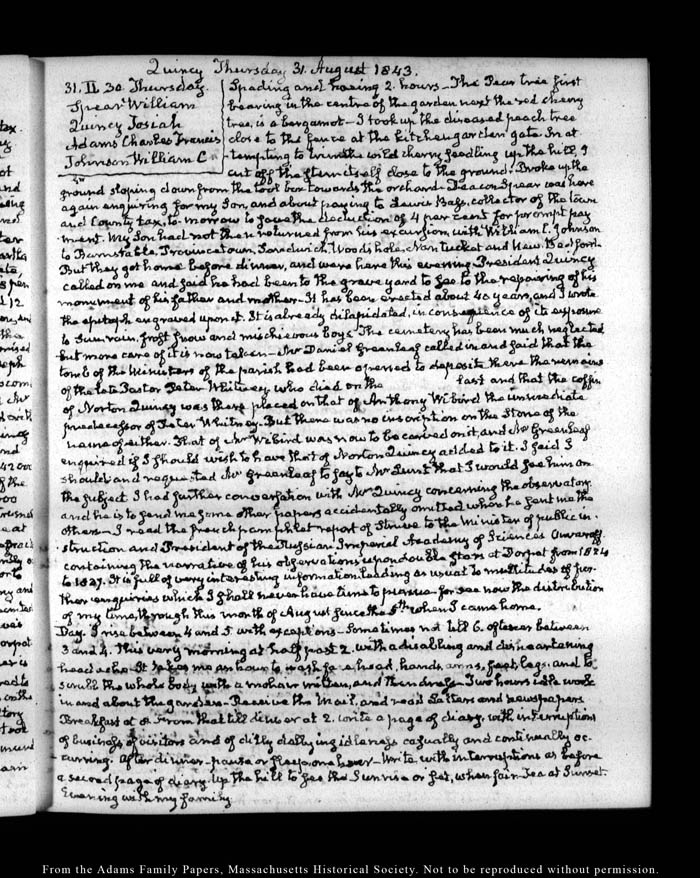 Quincy Thursday 31. August 1843.
31. II. 30. Thursday.
Spear William
Quincy Josiah
Adams Charles Francis
Johnson William C
Spading and hoeing 2 hours—The Pear tree first
bearing in the centre of the garden next the red cherry
tree, is a bergamot—I took up the diseased peach tree
close to the fence at the kitchen garden gate. In at-
tempting to trim the wild cherry seedling up the hill, I
cut off the stem itself close to the ground. Broke up the
ground sloping down from the tool box towards the orchard. Deacon Spear was here
again enquiring for my Son, and about paying to Lewis Bass, collector of the town
and County tax, to-morrow to save the deduction of 4 per cent for prompt pay
ment. My Son had not then returned from his excursion with William C. Johnson
to Barnstable, Provincetown, Sandwich, Woods hole, Nantucket and New Bedford.
But they got home before dinner, and were here this evening. President Quincy
called on me and said he had been to the grave yard to see to the repairing of his
monument of his father and mother—It has been erected about 40 years, and I wrote
the epitaph engraved upon it. It is already dilapidated, in consequence of its exposure
to Sun, rain, frost snow and mischievous boys. The cemetery has been much neglected
but more care of it is now taken—Mr Daniel Greenleaf called in and said that the
tomb of the Ministers of the parish had been opened to deposite there the remains
of the late Pastor Peter Whitney who died on the last and that the coffin
of Norton Quincy was there placed on that of Anthony Wibird the immediate
predecessor of Peter Whitney. But there was no inscription on the Stone of the
name of either. That of Mr Wibird was now to be carved on it, and Mr Greenleaf
enquired if I should wish to have that of Norton Quincy added to it. I said I
should and requested Mr Greenleaf to say to Mr Lunt that I would see him on
the subject. I had further conversation with Mr Quincy concerning the observatory
and he is to send me some other papers accidentally omitted when he sent me the
others—I read the French pamphlet report of Struve to the Minister of public in-
struction and President of the Russian Imperial Academy of Sciences
containing the narrative of his observations upon double Stars at Dorpat from 1824
to 1837. It is full of very interesting information leading as usual to multitudes of fur-
ther enquiries which I shall never have time to pursue—for see now the distribution
of my time, through this month of August since the 5th when I came home.
Day. I rise between 4 and 5 with exceptions—Sometimes not till 6. oftener between
3 and 4. This very morning at half past 2. with a disabling and disheartening
head ache. It takes me an hour to wash face, head, hands, arms, feet, legs, and to
scrub the whole body with a mohair mitten, and then dress—Two hours idle work
in and about the garden—Receive the Mail, and read Letters and newspapers
Breakfast at 8. From that till dinner at 2. write a page of diary, with interruptions
of business of visitors and of dilly dallying idleness casually and continually oc-
curring. After dinner—pause or sleep one hour—Write with interruptions as before
a second page of diary. Up the hill to see the Sunrise or set, when fair. Tea at Sunset.
Evening with my family.
From the Adams Family Papers, Massachusetts Historical Society. Not to be reproduced without permission.